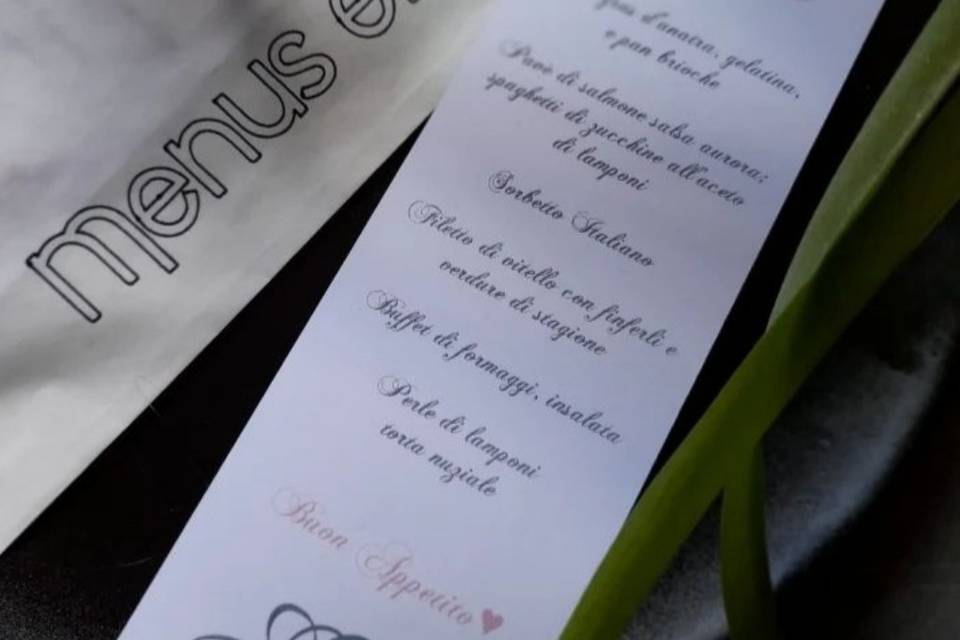 menus
d'anatra, gelatina,
e pan brioche
Pavè di salmone salsa aurora;
spaghetti di zucchine all'aceto
di lamponi
Sorbetto Italiano
Filetto di vitello con finferli e
verdure di stagione
Buffet di formaggi, insalata
Perle di lamponi
torta nuziale
Buon Appetito